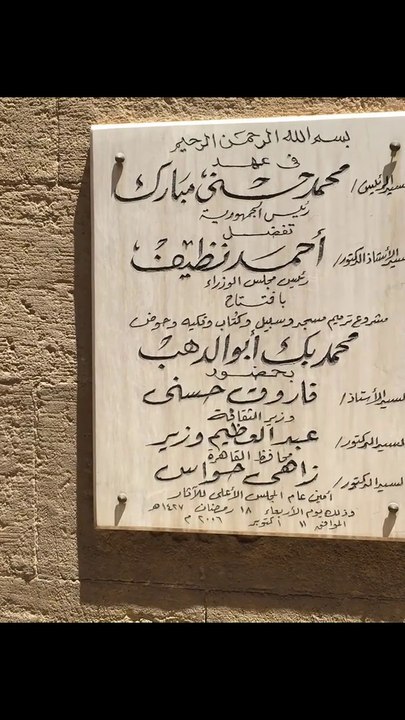 بسم الله الرحمن الرحيم
فى عهد
السيد الرئيس / محمد حسنى مبارك
رئيس الجمهورية
تفضل
السيد الأستاذ الدكتور / أحمد نظيف
رئيس مجلس الوزراء
بافتتاح
مشروع ترميم مسجد وسبيل وكتاب وتكيه وحوض
محمد بك أبو الدهب
بحضور
السيد الأستاذ / فاروق حسنى
وزير الثقافة
السيد الدكتور / عبد العظيم وزير
محافظ القاهرة
السيد الدكتور / زاهى حواس
أمين عام المجلس الأعلى للآثار
وذلك يوم الأربعاء ١٨ رمضان ١٤٢٧هـ
الموافق ١١ أكتوبر ٢٠٠٦ م